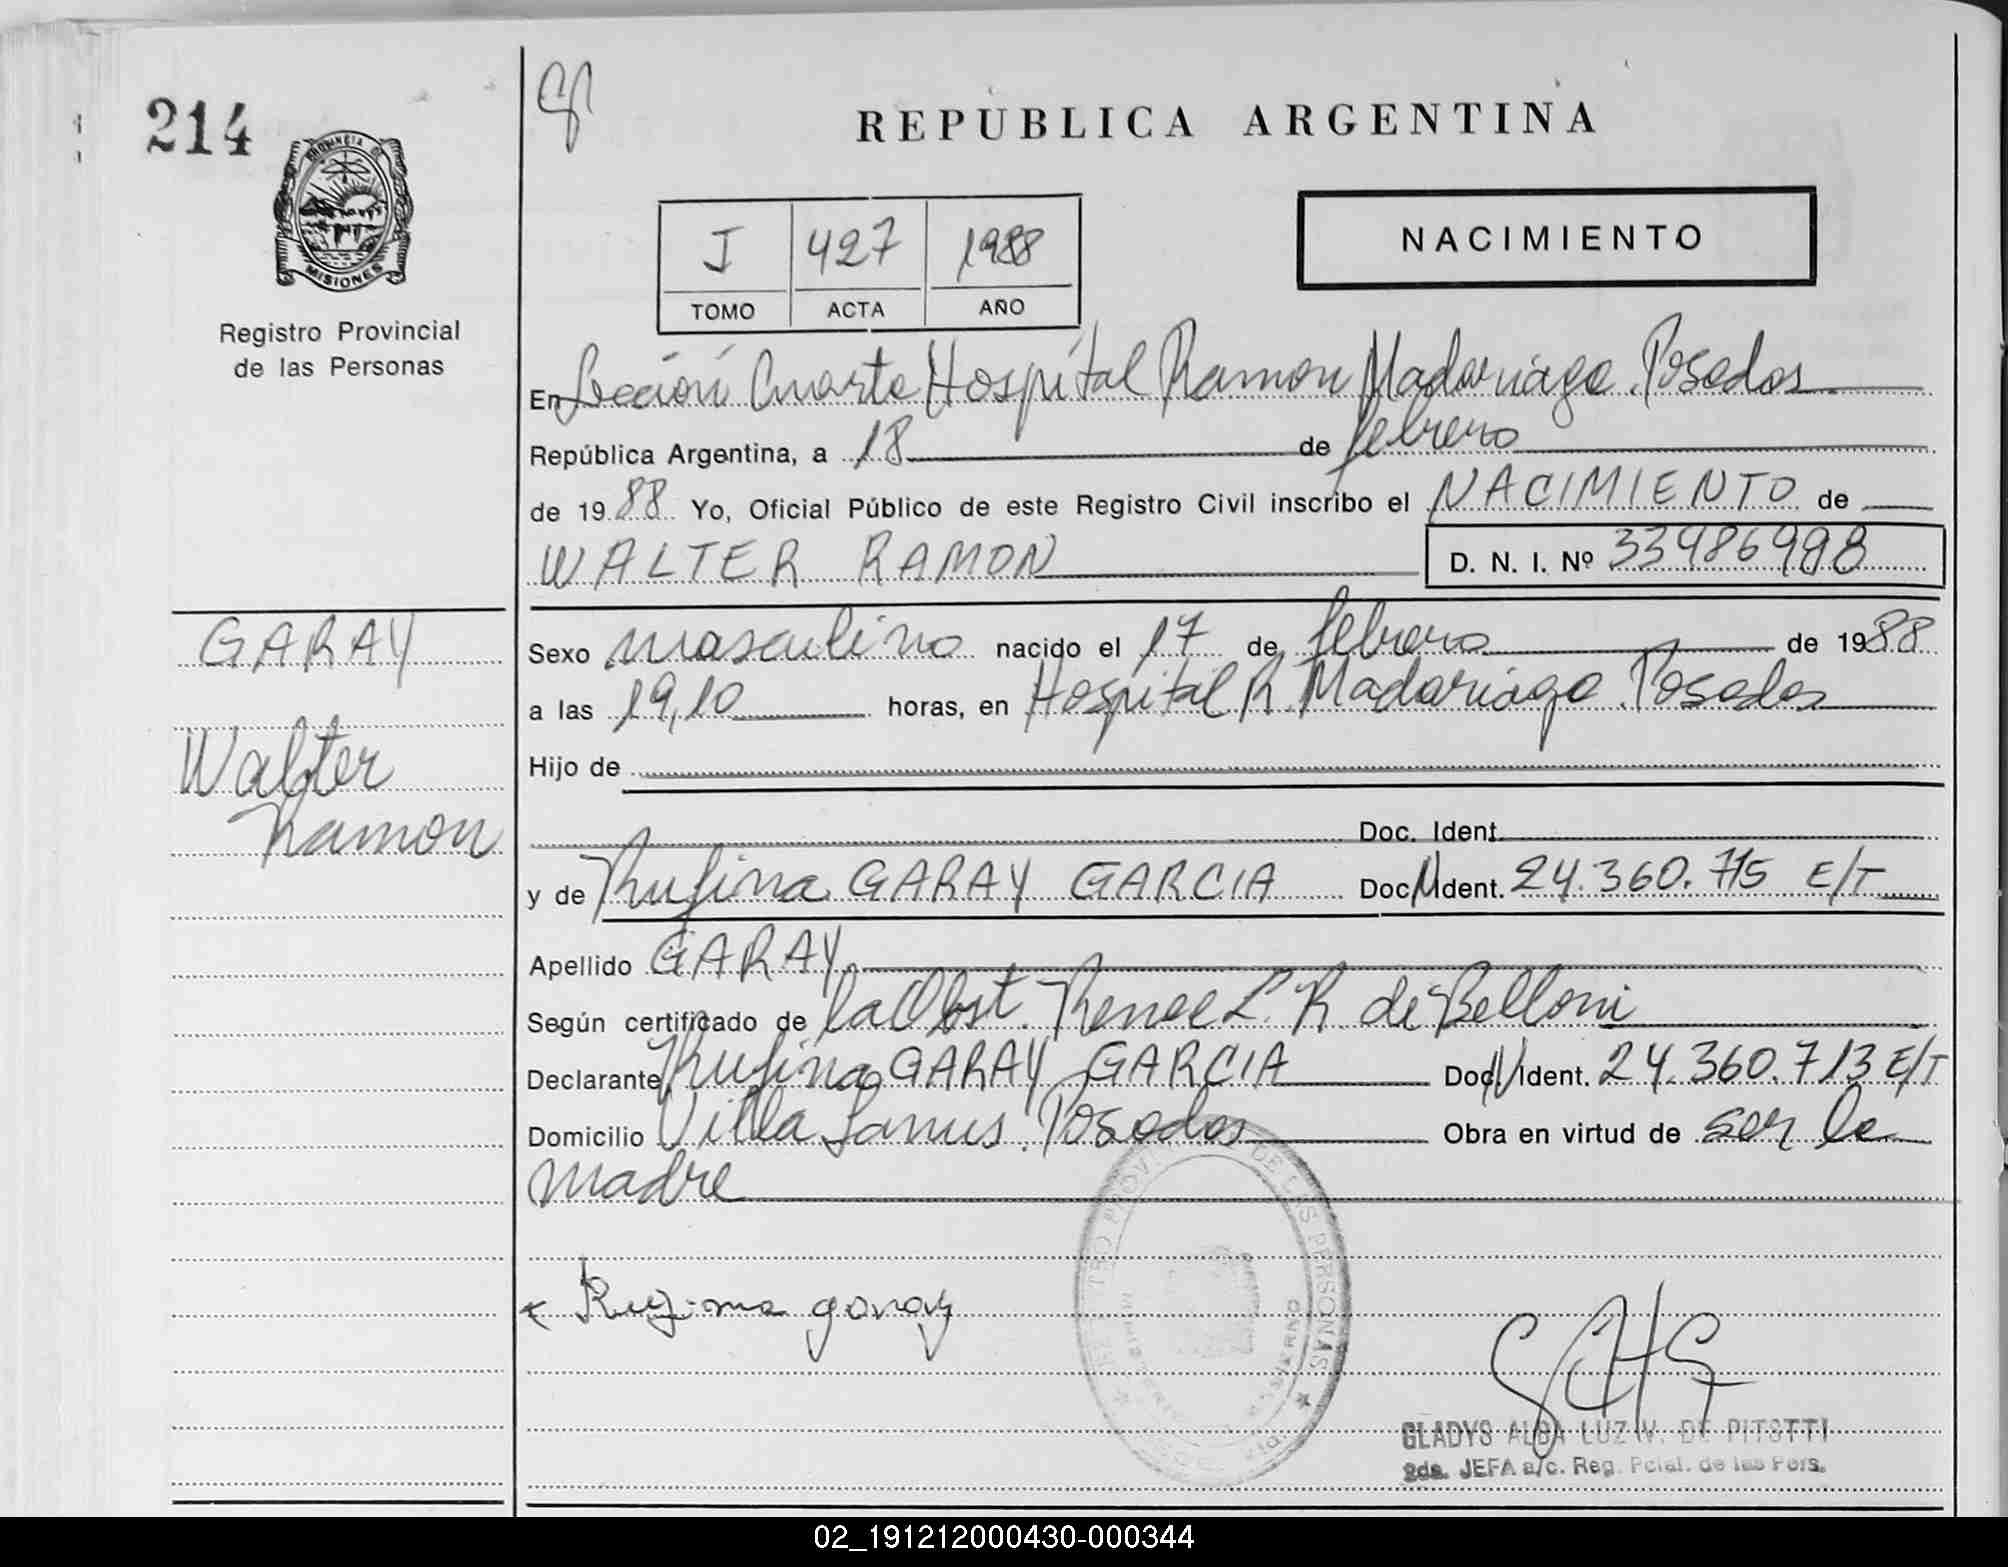 214
REPUBLICA ARGENTINA
PROVINCIA DE
MISIONES
Registro Provincial
de las Personas
J 427 1988
TOMO ACTA AÑO
NACIMIENTO
En Sección Cuarta Hospital Ramon Madariaga. Posadas
República Argentina, a 18 de febrero
de 1988 Yo, Oficial Público de este Registro Civil inscribo el NACIMIENTO de
WALTER RAMON D. N. I. Nº 33486998
GARAY
Walter
Ramon
Sexo masculino nacido el 17 de febrero de 1988
a las 19,10 horas, en Hospital R. Madariaga. Posadas
Hijo de
Doc. Ident.
y de Rufina GARAY GARCIA Doc. N Ident. 24.360.715 E/T
Apellido GARAY
Según certificado de la Obst. Renee L. R de Belloni
Declarante Rufina GARAY GARCIA Doc. N Ident. 24.360.713 E/T
Domicilio Villa Lanus. Posadas Obra en virtud de ser la
madre
Rufina garay
DE LAS PERSONAS
GLADYS ALBA LUZ V. DE PITOTTI
2da. JEFA a/c. Reg. Pcial. de las Pers.
02_191212000430-000344